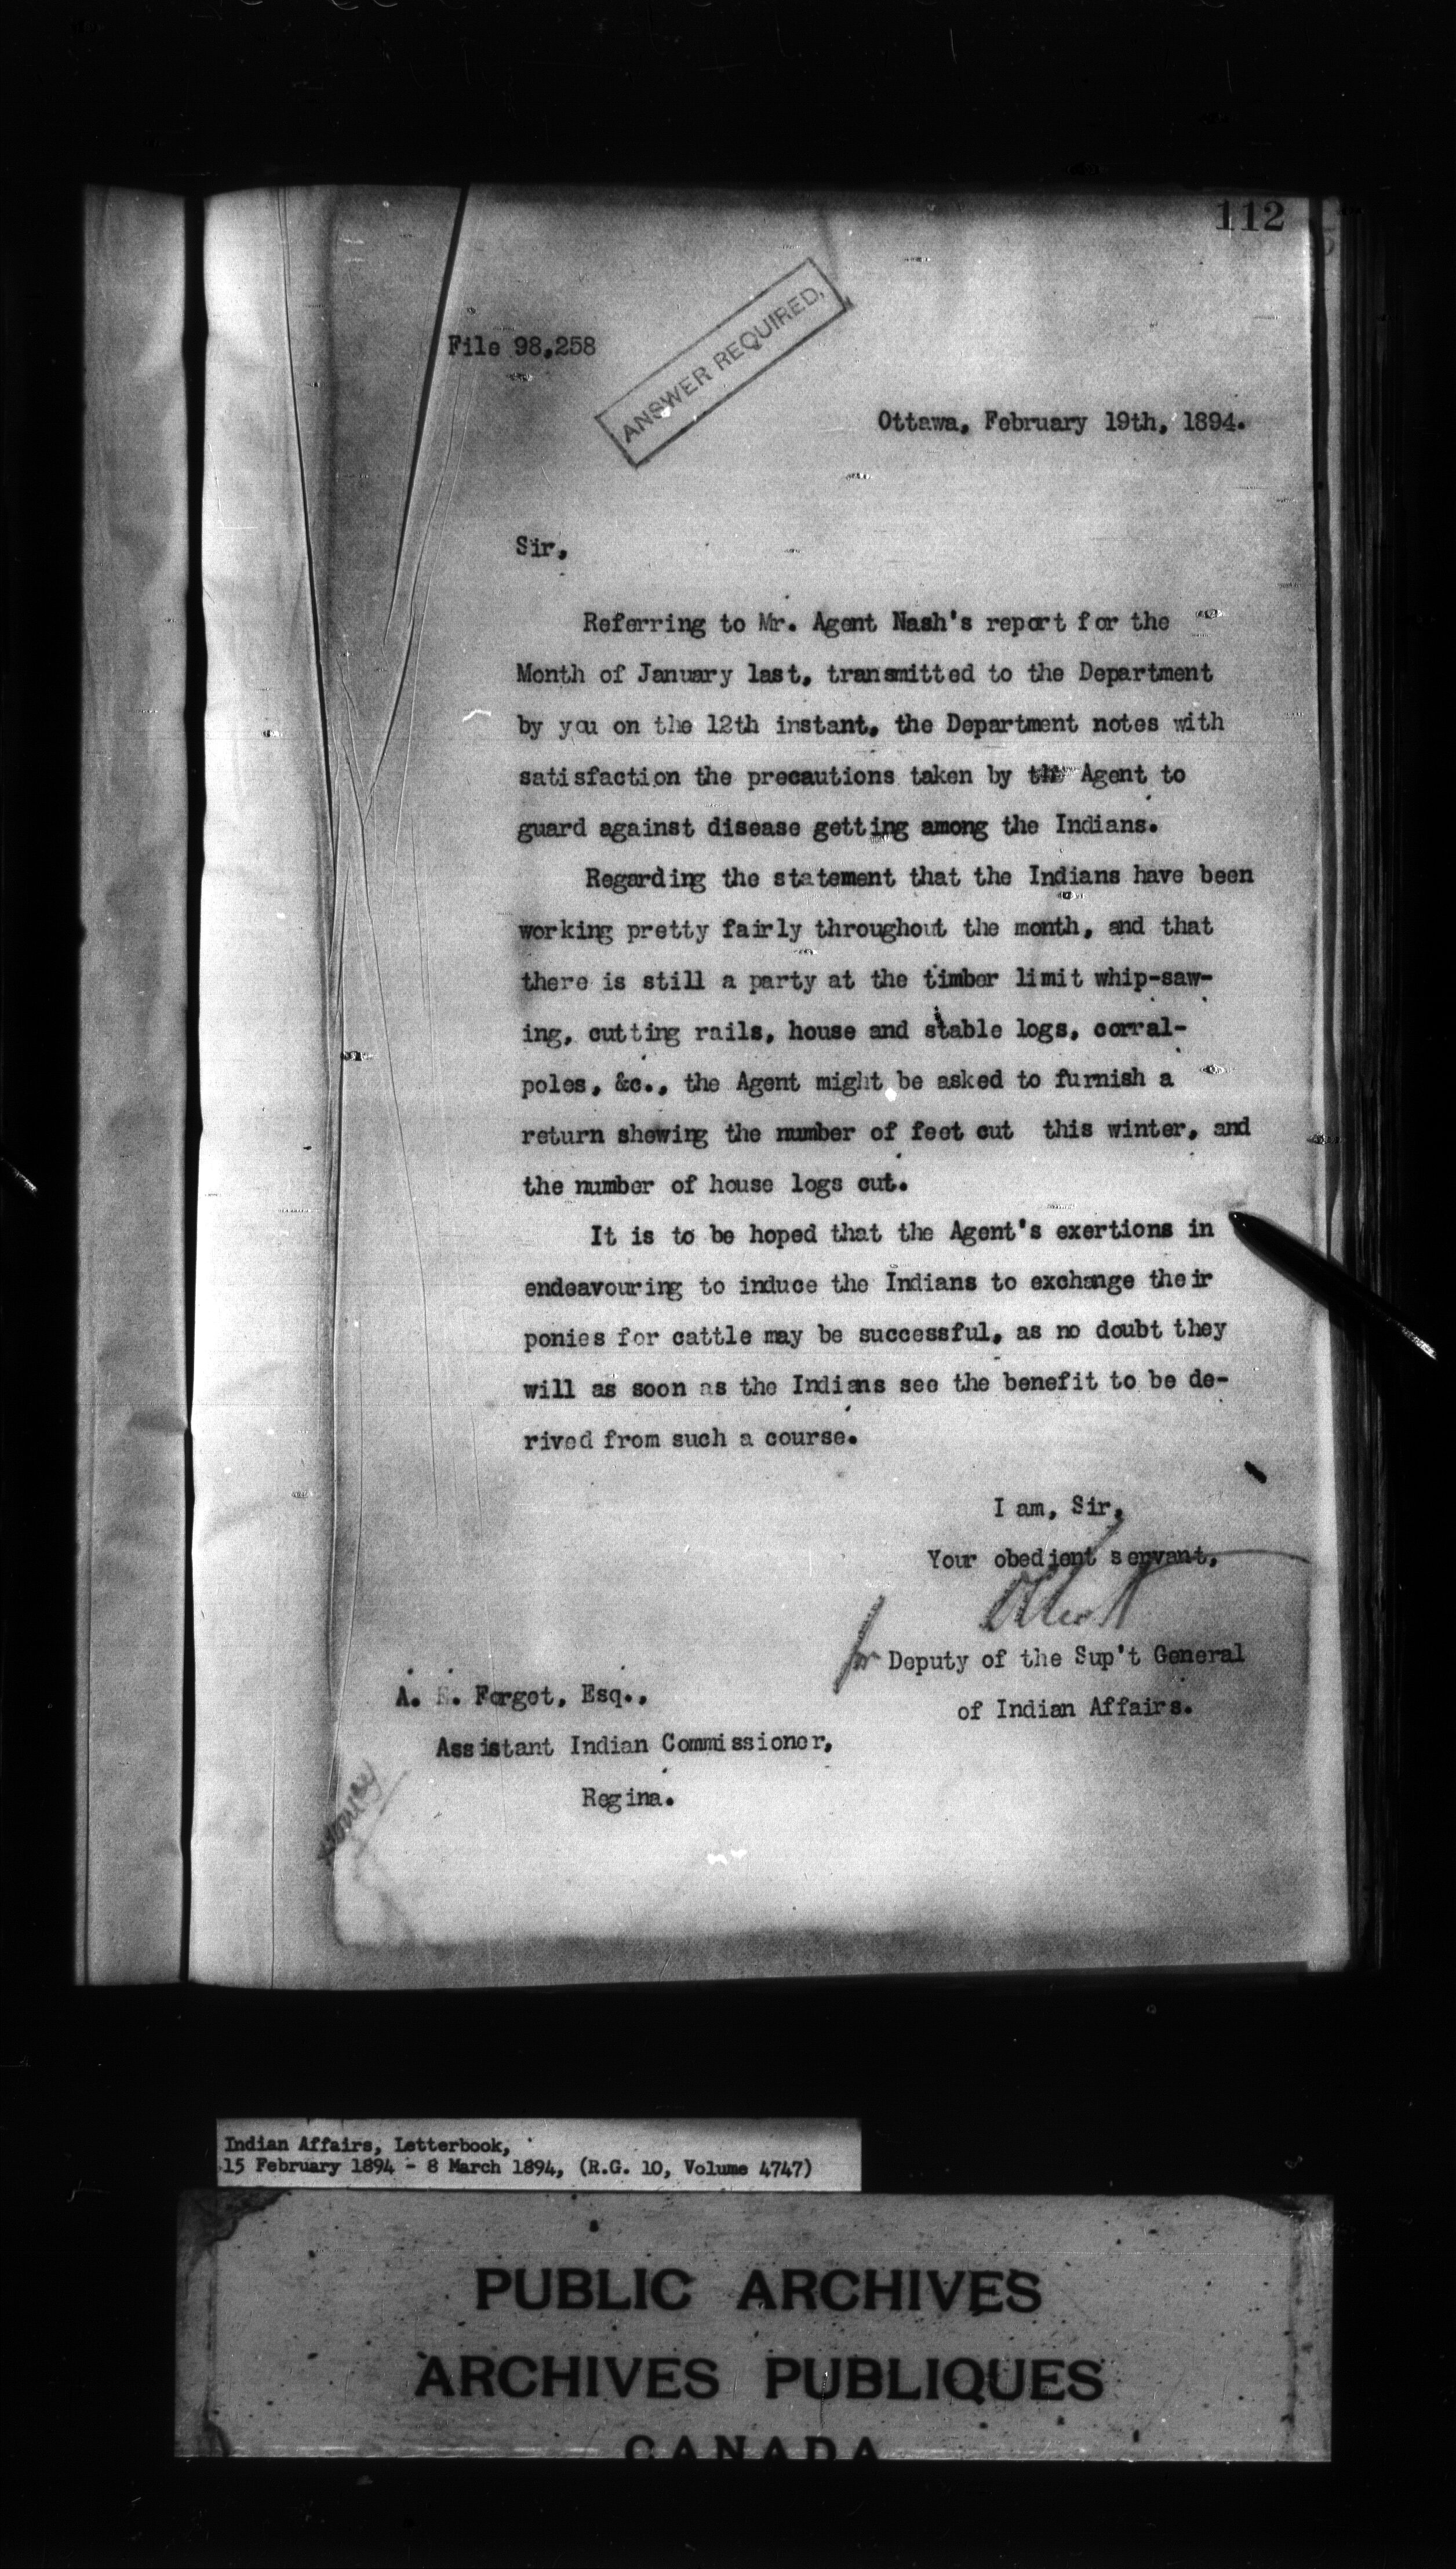 112
File 98,258
ANSWER REQUIRED.
Ottawa, February 19th, 1894.
Sir,
Referring to Mr. Agent Nash's report for the
Month of January last, transmitted to the Department
by you on the 12th instant, the Department notes with
satisfaction the precautions taken by the Agent to
guard against disease getting among the Indians.
Regarding the statement that the Indians have been
working pretty fairly throughout the month, and that
there is still a party at the timber limit whip-saw-
ing, cutting rails, house and stable logs, corral-
poles, &c., the Agent might be asked to furnish a
return shewing the number of feet cut this winter, and
the number of house logs cut.
It is to be hoped that the Agent's exertions in
endeavouring to induce the Indians to exchange their
ponies for cattle may be successful, as no doubt they
will as soon as the Indians see the benefit to be de-
rived from such a course.
I am, Sir,
Your obedient servant,
for Deputy of the Sup't General
of Indian Affairs.
A. E. Forget, Esq.,
Assistant Indian Commissioner,
Regina.
Indian Affairs, Letterbook,
15 February 1894 - 8 March 1894, (R.G. 10, Volume 4747)
PUBLIC ARCHIVES
ARCHIVES PUBLIQUES
CANADA